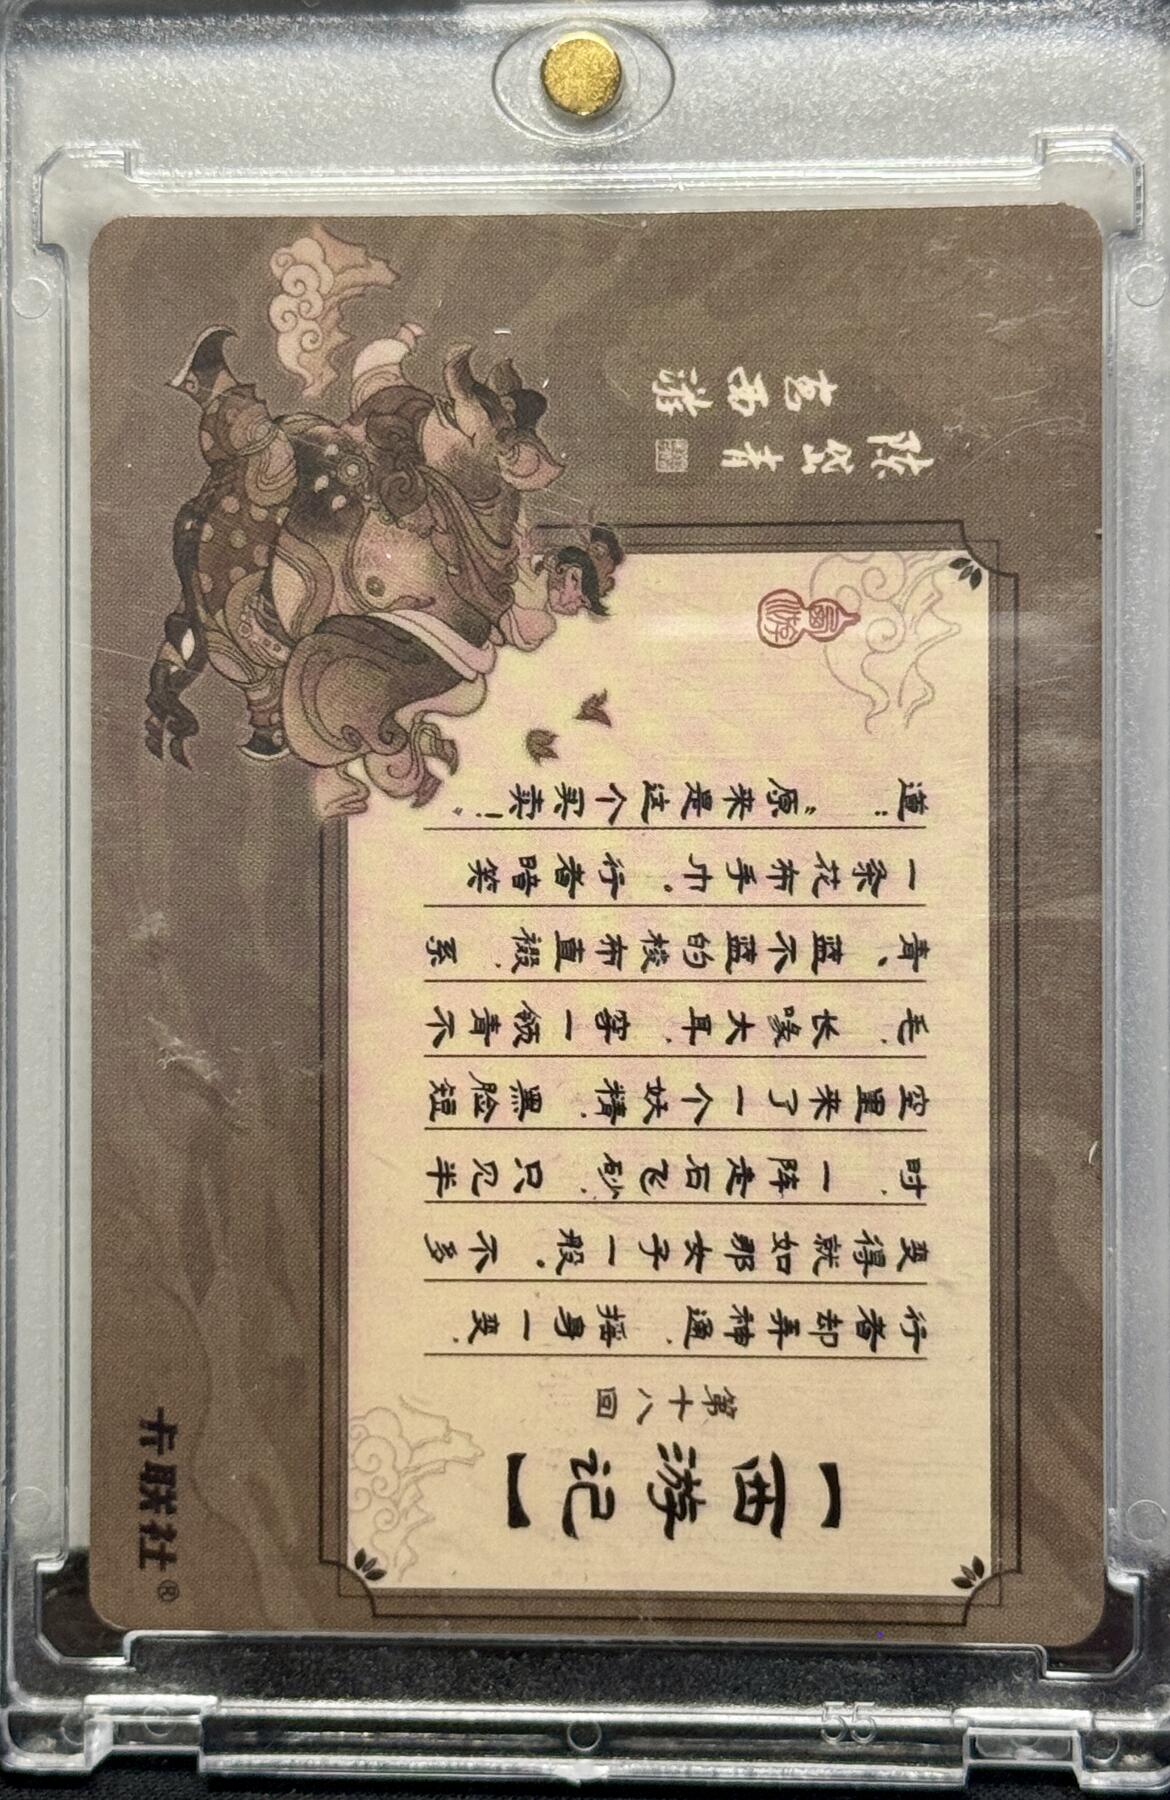 【西游记】
第十八回
行者却弄神通，摇身一变，
变得就如那女子一般。不多
时，一阵走石飞砂，只见半
空里来了一个妖精，黑脸短
毛，长喙大耳，穿一领青不
青、蓝不蓝的梭布直裰，系
一条花布手巾。行者暗笑
道：“原来是这个买卖！”
西游
卡联社®
55